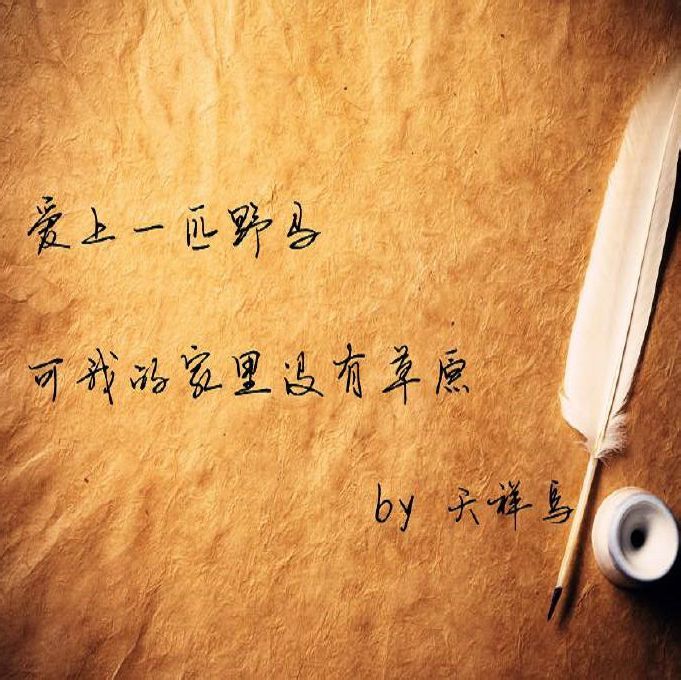 爱上一匹野马
可我的家里没有草原
by 天祥马